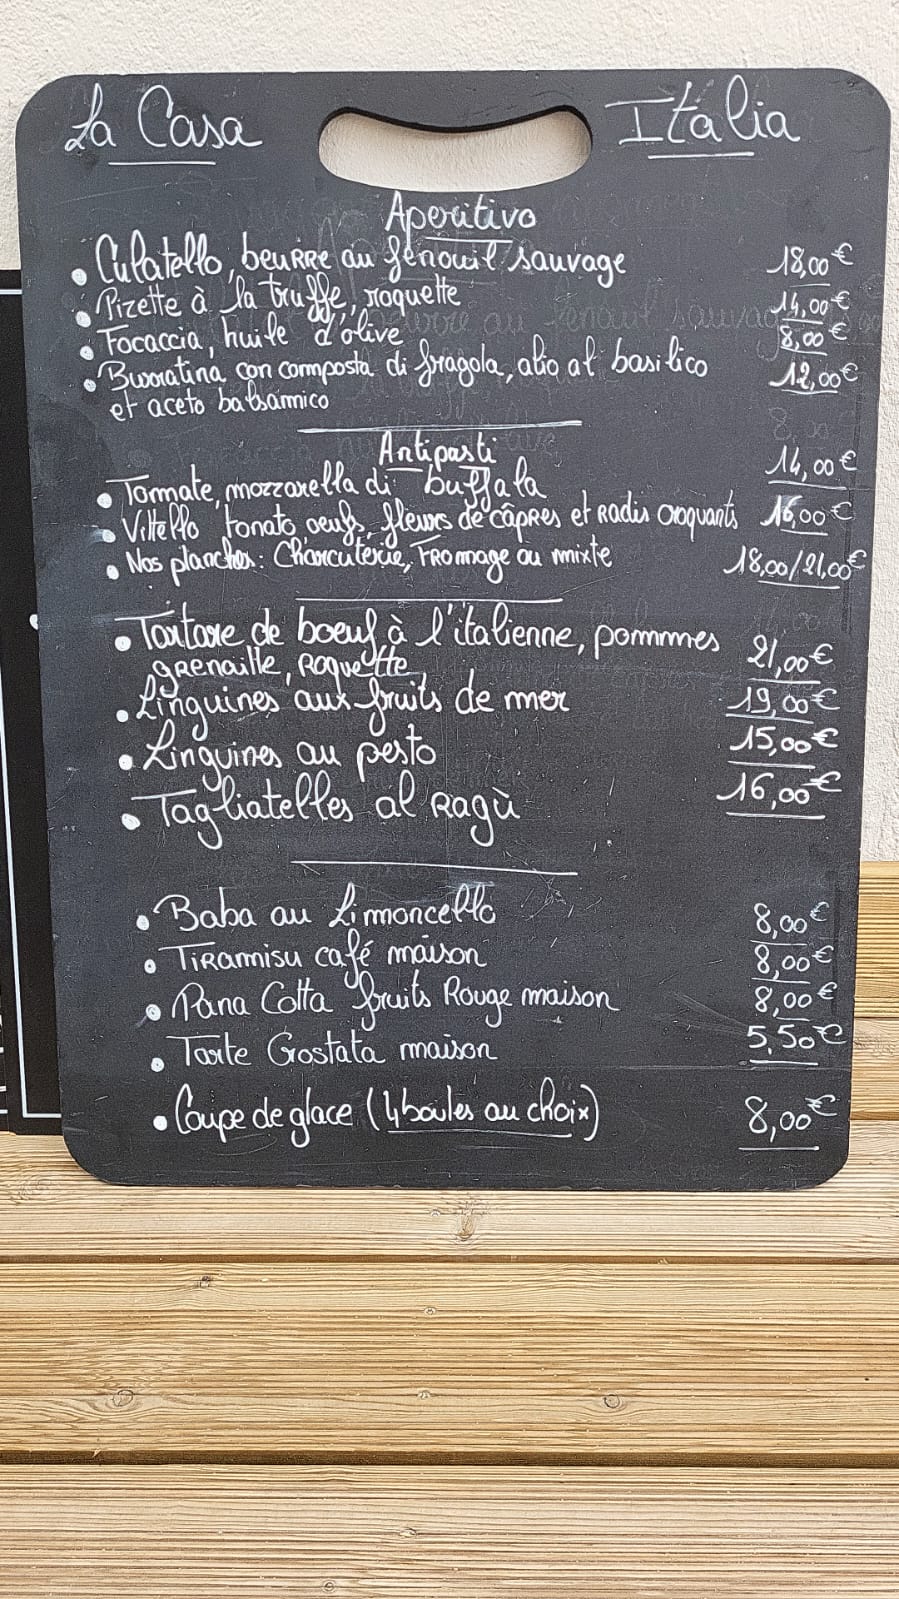 La Casa Italia
Aperitivo
• Culatello, beurre au fenouil sauvage 18,00€
• Pizette à la truffe, roquette 14,00€
• Focaccia, huile d'olive 8,00€
• Burratina con composta di fragola, alio al basilico 12,00€
et aceto balsamico
Antipasti
• Tomate, mozzarella di buffala 14,00€
• Vitello tonato oeufs, fleurs de câpres et Radis croquants 16,00€
• Nos planches: Charcuterie, Fromage ou mixte 18,00/21,00€
• Tartare de boeuf à l'italienne, pommes 21,00€
grenaille, Roquette
• Linguines aux fruits de mer 19,00€
• Linguines au pesto 15,00€
• Tagliatelles al Ragù 16,00€
• Baba au Limoncello 8,00€
• Tiramisu café maison 8,00€
• Pana Cotta fruits Rouge maison 8,00€
• Tarte Crostata maison 5,50€
• Coupe de glace (4 boules au choix) 8,00€